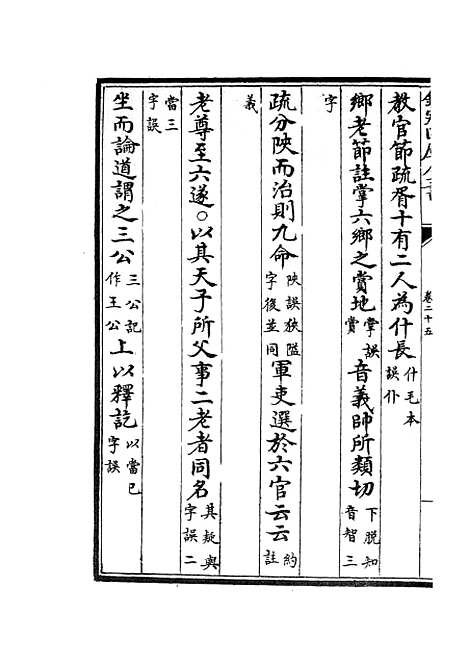 欽定四庫全書
卷二十五
教官節疏胥十有二人為什長什毛本誤仆
鄉老節註掌六鄉之賞地掌誤賞 音義帥所類切下脫知音智三
字
疏分陜而治則九命陜誤狹隘字後並同 軍吏選於六官云云約註
義
老尊至六遂○以其天子所父事二老者同名其疑與字誤二
當三字誤
坐而論道謂之三公三公記作王公 上以釋訖以當已字誤